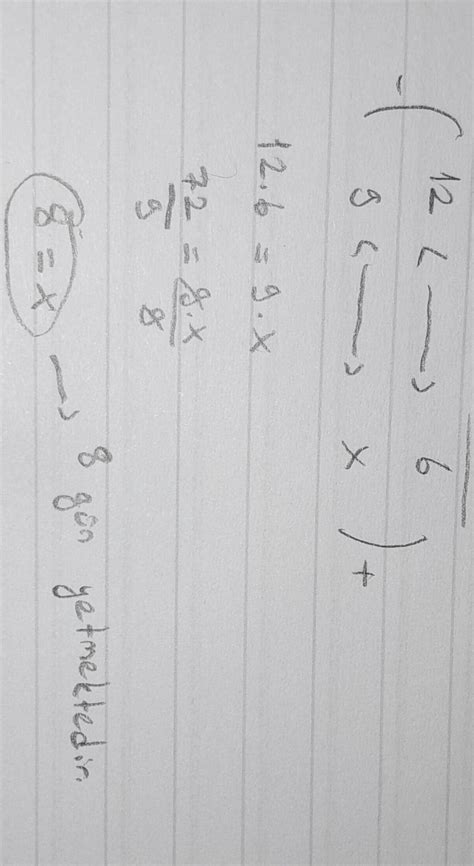 -( 12 <—> 6
9 <—> x )+
12.6 = 9.x
72/9 = 9.x/9
8 = x → 8 gün yetmektedir.